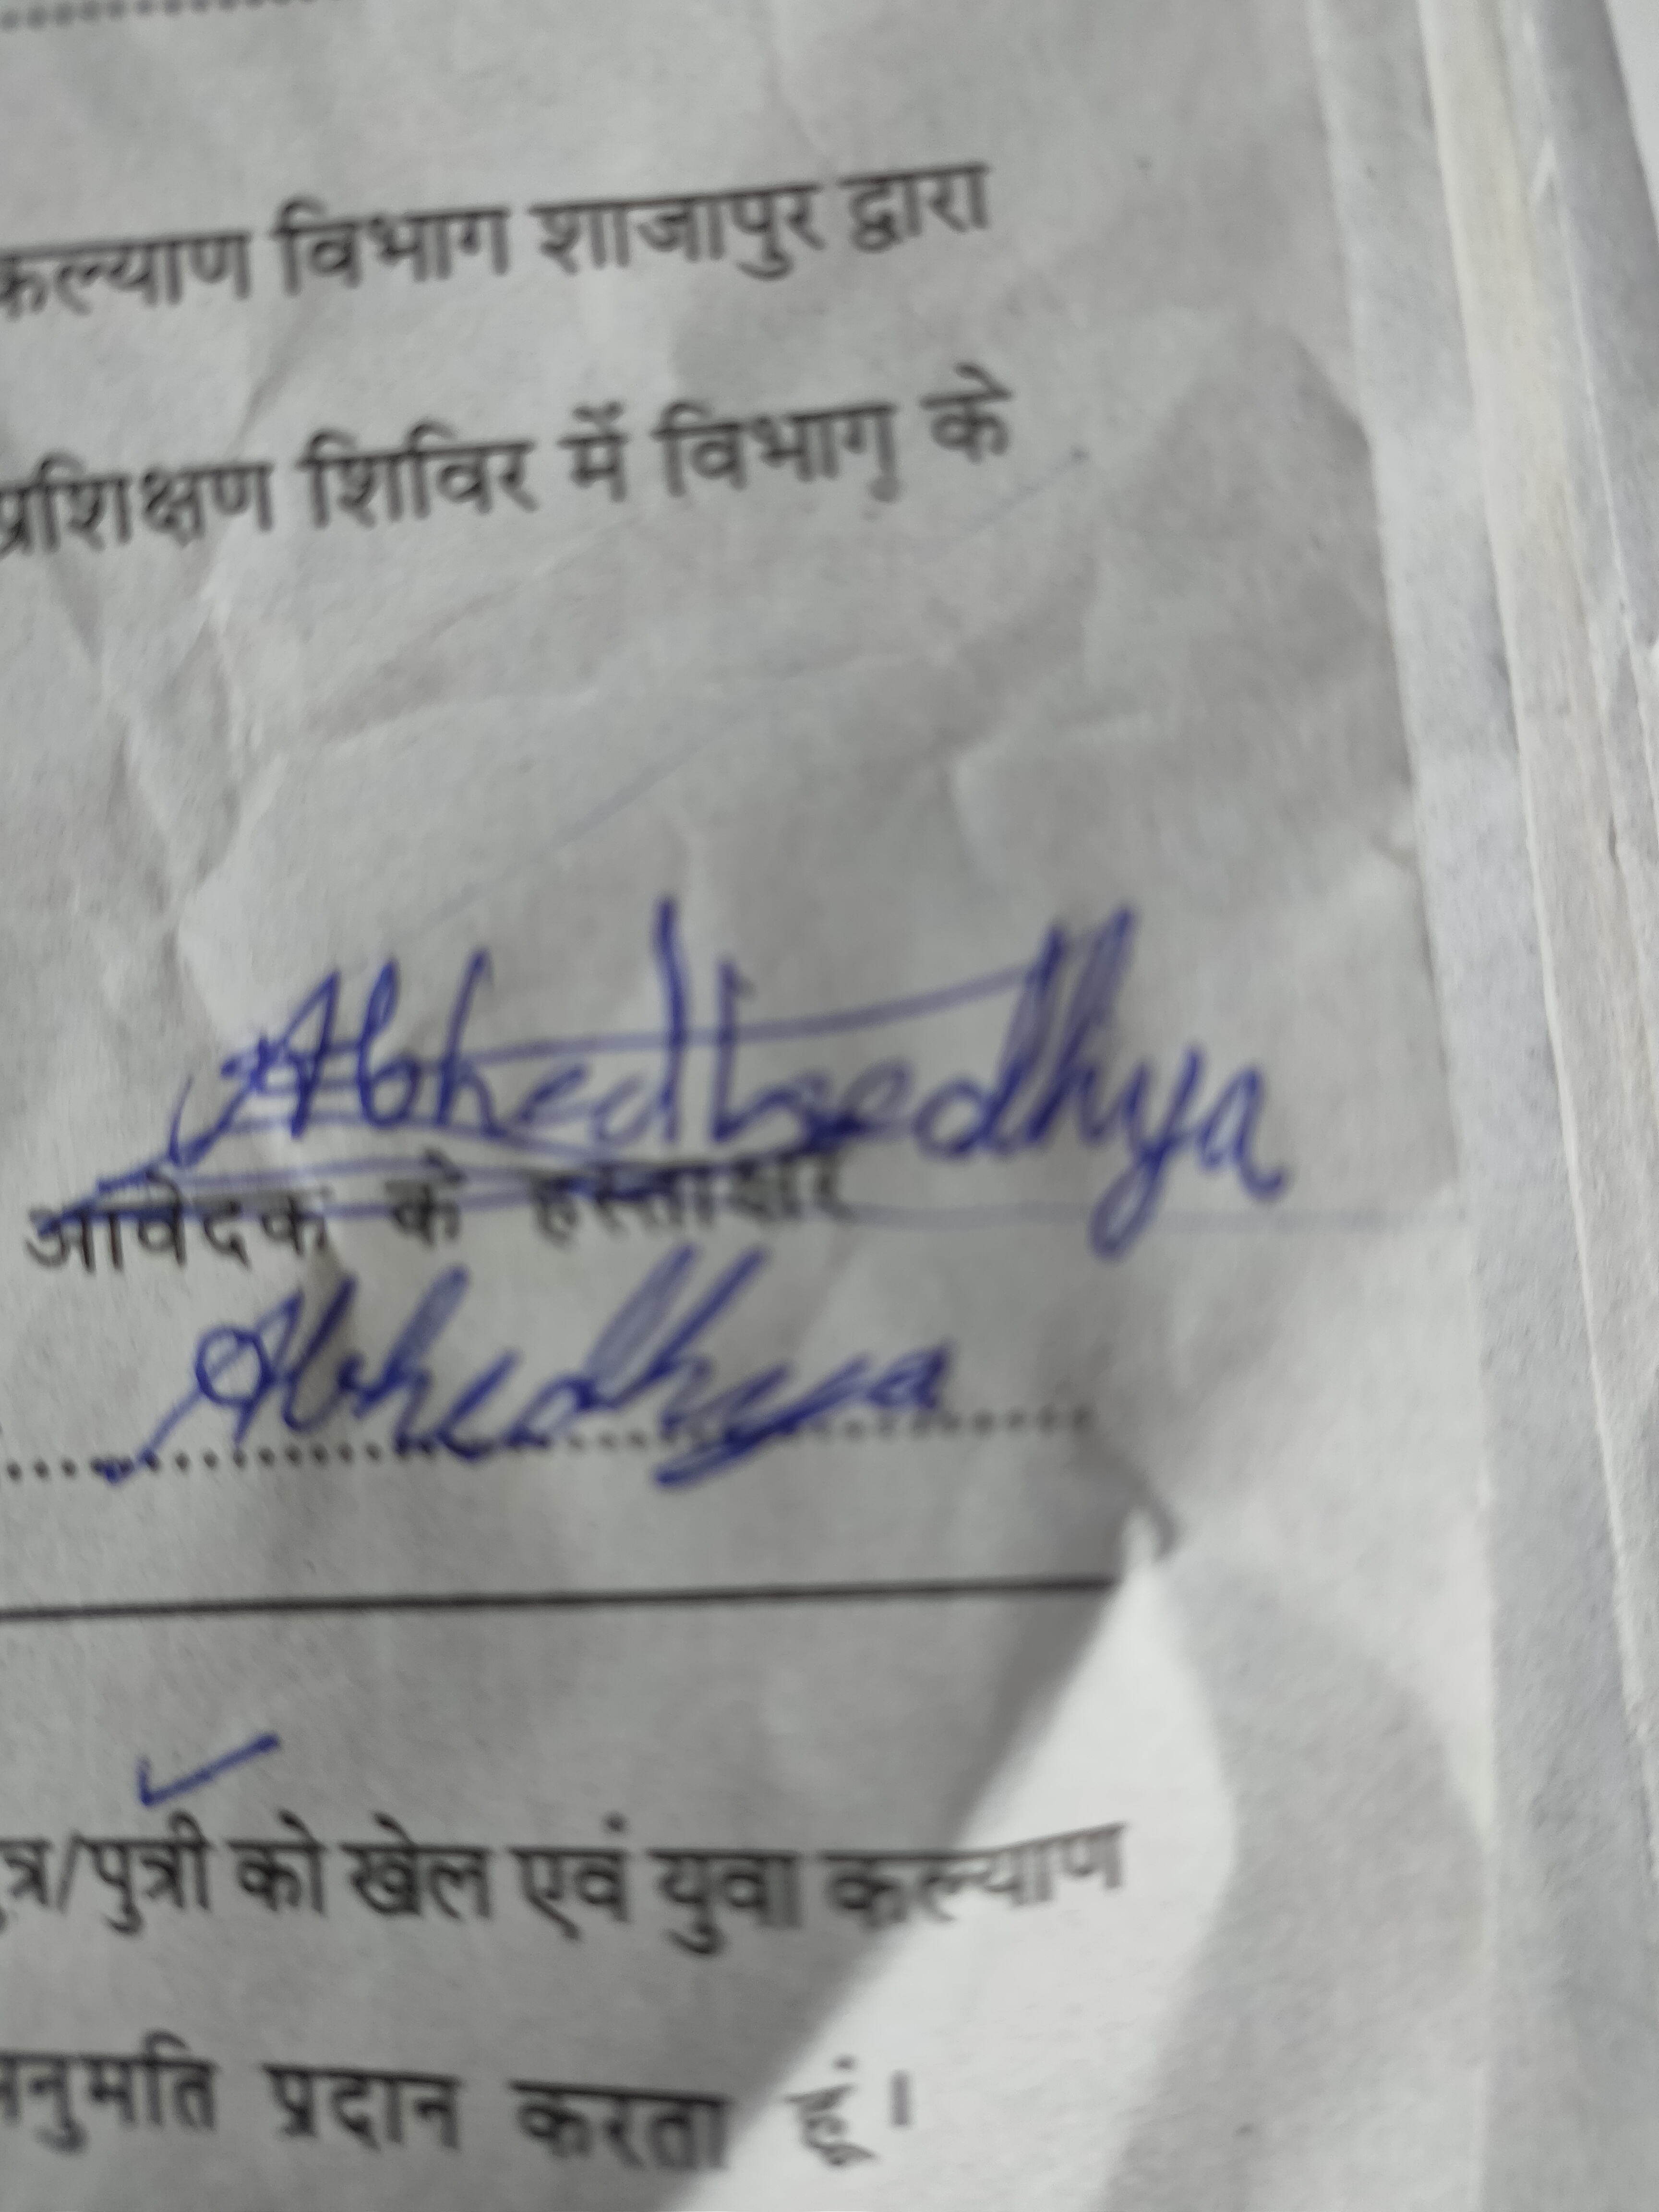 कल्याण विभाग शाजापुर द्वारा
प्रशिक्षण शिविर में विभाग के
आवेदक के हस्ताक्षर
Abhedhya
पुत्र/पुत्री को खेल एवं युवा कल्याण
अनुमति प्रदान करता हूं।